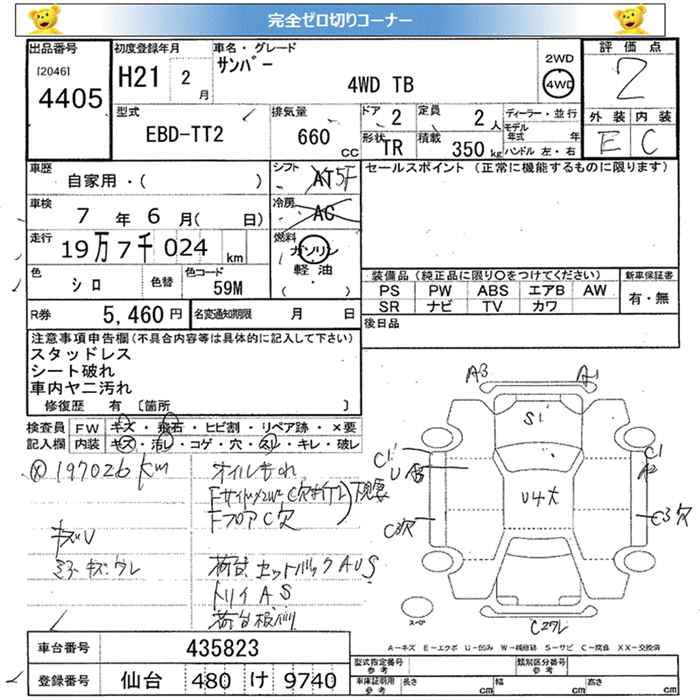 完全ゼロ切りコーナー
出品番号 初度登録年月 車名・グレード 評価点
[2046] 4405 H21 2月 サンバー 4WD TB 2WD 4WD 2
型式 排気量 ドア 2 定員 2人 ディーラー・並行 外装 内装
EBD-TT2 660cc 形状 TR 積載 350kg モデル年式 年 E C
ハンドル 左・右
車歴 自家用・( ) シフト AT 5F セールスポイント (正常に機能するものに限ります)
車検 7年6月( 日) 冷房 AC
走行 19万7千024km 燃料 ガソリン
軽油
( ・ )
色 シロ 色替 色コード 59M 装備品 (純正品に限り○をつけてください) 新車保証書
PS PW ABS エアB AW 有・無
SR ナビ TV カワ
R券 5,460円 名変通知期限 月 日 後日品
注意事項申告欄(不具合内容等は具体的に記入して下さい)
スタッドレス
シート破れ
車内ヤニ汚れ
修復歴 有 [箇所 ]
検査員 FW キズ・飛石・ヒビ割・リペア跡・×要
記入欄 内装 キズ・汚レ・コゲ・穴・スレ・キレ・破レ
197026km オイルもれ
FフロアC欠
キズU
ミラーキズワレ 荷台セットバックAUS
トリイAS
A3 A1
S1
C1 C1
U A2
U4大
C3欠 C3欠
スペア
C2ワレ
A-キズ E-エクボ U-凹み W-補修跡 S-サビ C-腐食 XX-交換済
車台番号 435823
型式指定番号 参考 類別区分番号 参考
登録番号 仙台 480 け 9740
車庫証明用 参考 長さ cm 幅 cm 高さ cm